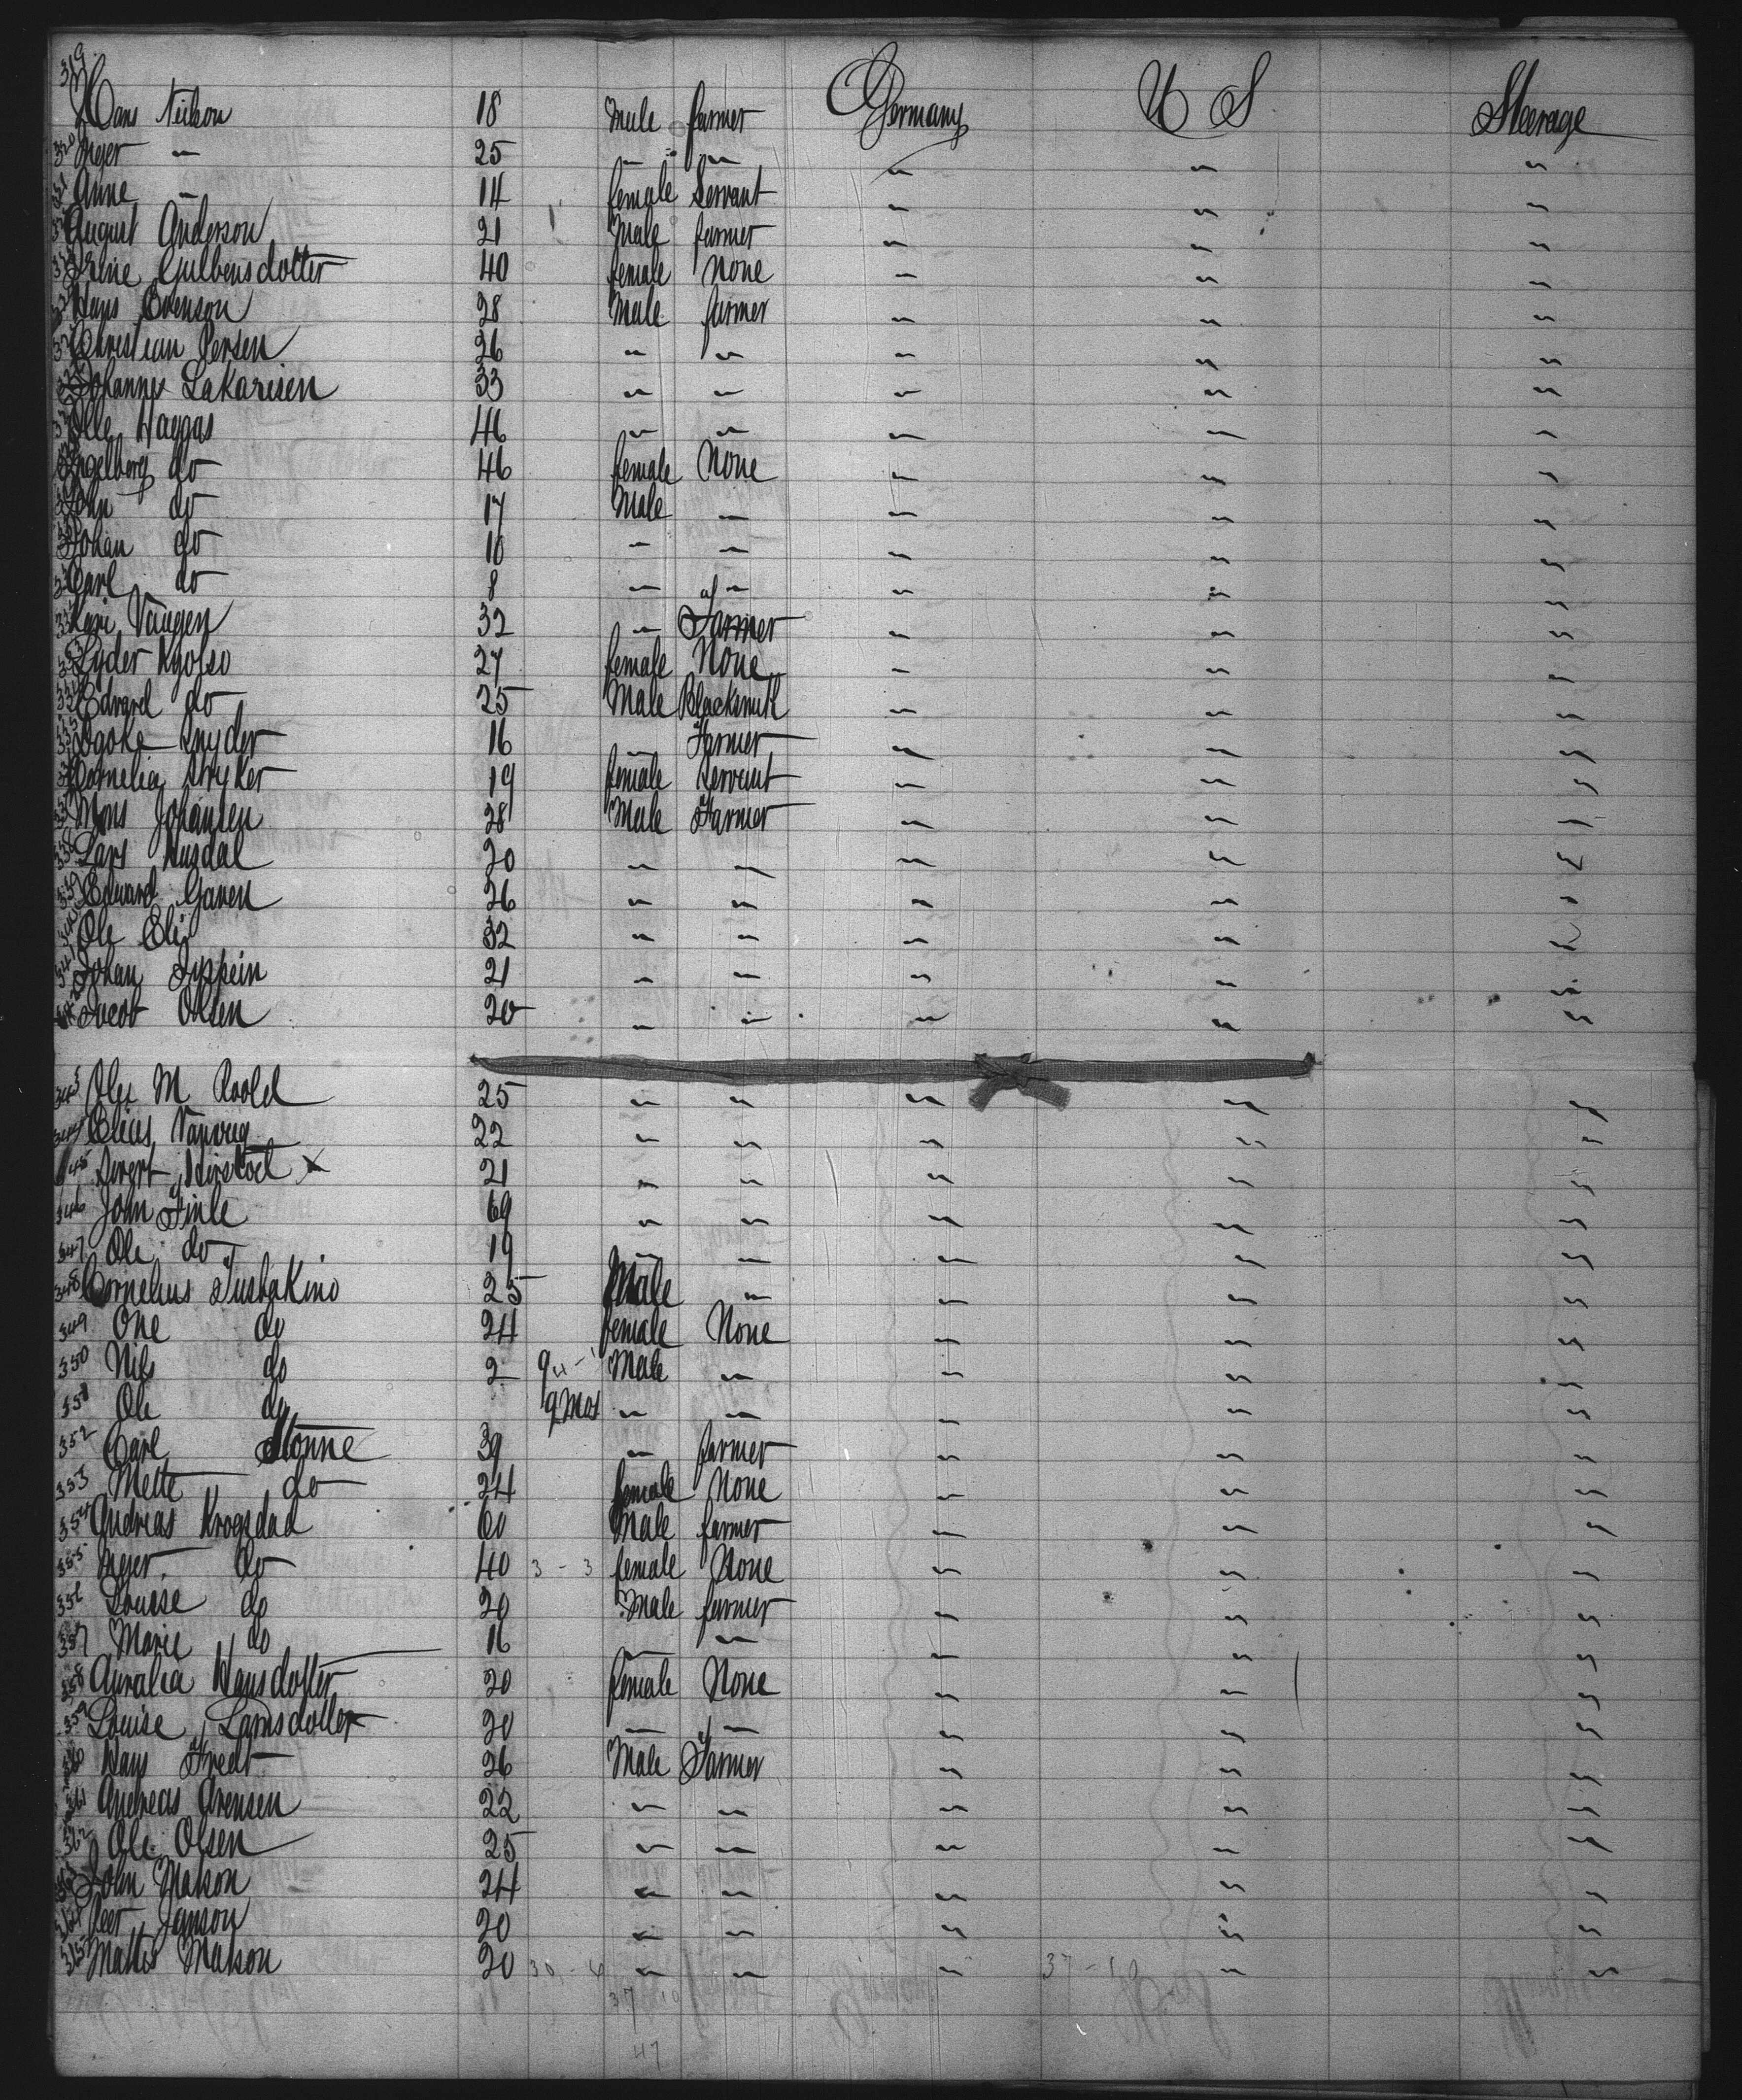 319 Hans Neilson 18 Male farmer Germany U S Steerage
320 Meyer " 25 " " " " "
321 Anne " 14 female Servant " " "
August Anderson 21 Male farmer " " "
Gulbensdotter 40 female None " " "
Hans Evenson 28 Male farmer " " "
Christian Persen 26 " " " " "
Johannes Lakarisen 33 " " " " "
Olle Haggas 46 " " " " "
Ingelborg do 46 female None " " "
John do 17 Male " " " "
Johan do 10 " " " " "
Carl do 8 " " " " "
Kari Vaugen 32 " Farmer " " "
Lyder Kyolso 27 female None " " "
Edvard do 25 Male Blacksmith " " "
Snyder 16 " Farmer " " "
Cornelia Stryker 19 female Servant " " "
Mons Johansen 28 Male Farmer " " "
338 Lars Husdal 20 " " " " "
339 Edward Garen 26 " " " " "
340 Ole Eli 32 " " " " "
341 Johan 21 " " " " "
342 Olsen 20 " " " " "
343 Ole M Roald 25 " " " " "
344 Elias 22 " " " " "
345 Sivert x 21 " " " " "
346 John Finle 69 " " " " "
347 Ole do 19 " " " " "
348 Cornelius 25 Male " " " "
349 One do 24 female None " " "
350 Nils do 2 Male " " " "
351 Ole do 9 Mos " " " " "
352 Carl Stonne 39 " farmer " " "
353 Mette do 24 female None " " "
354 Andreas Krogsdad 60 Male farmer " " "
355 Meyer do 40 3 - 3 female None " " "
356 Louise do 20 Male farmer " " "
357 Marie do 16 " " " " "
358 Auralia Hansdotter 20 female None " " "
359 Louise Larnsdotter 20 " " " " "
360 Hans Fredt 26 Male Farmer " " "
361 Andreas Arensen 22 " " " " "
362 Ole Olsen 25 " " " " "
363 John Matson 24 " " " " "
364 Peer Janson 20 " " " " "
365 Mattis Matson 20 30 - 4 " " " 37 - 10 " "
37 10
47